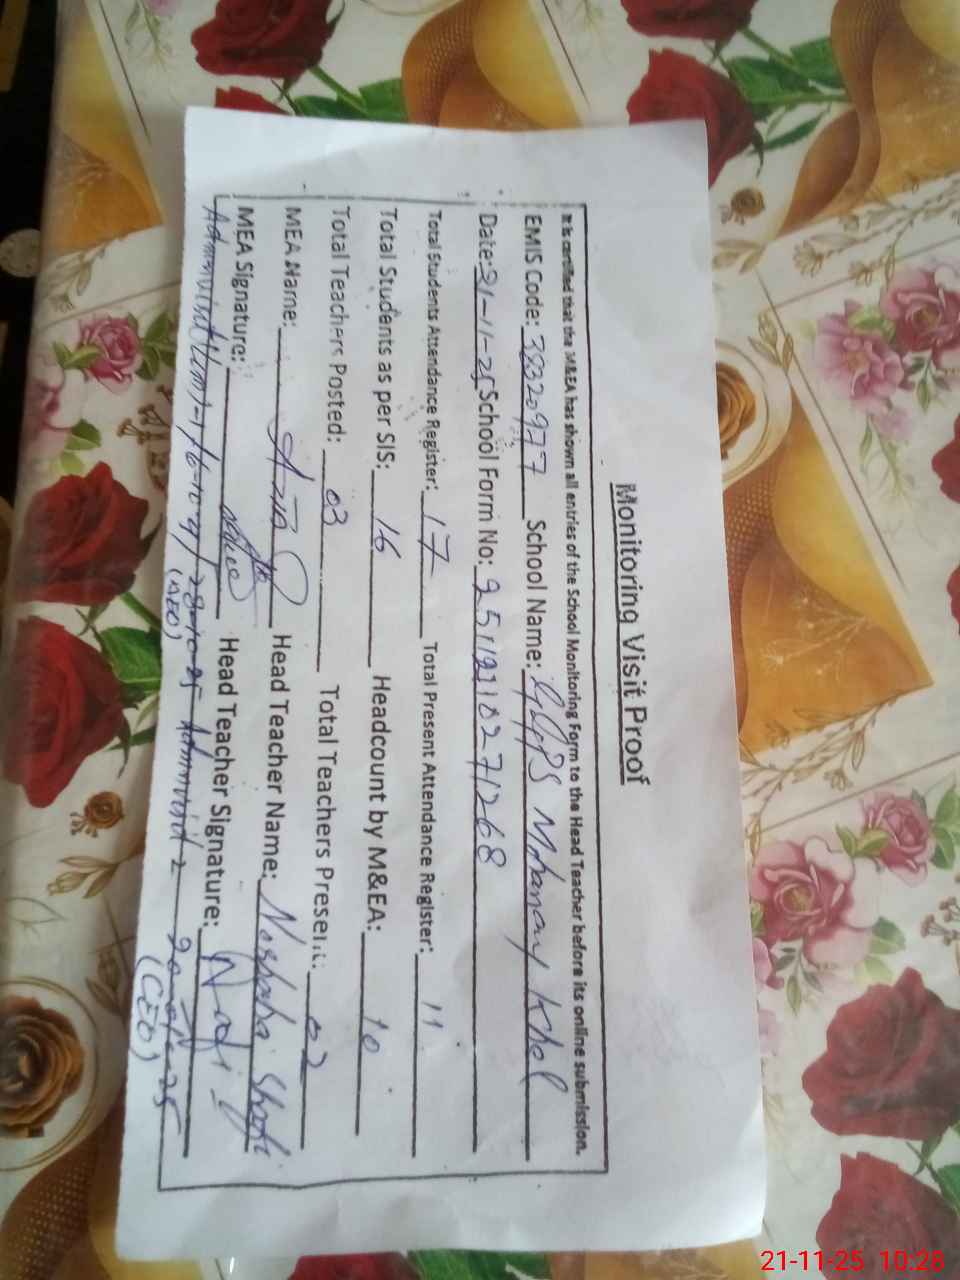 Monitoring Visit Proof
It is certified that the M&EA has shown all entries of the School Monitoring Form to the Head Teacher before its online submission.
EMIS Code: 38320977 School Name: GGPS Mohanay Khel
Date: 21-11-25 School Form No: 251121102771268
Total Students Attendance Register: 17 Total Present Attendance Register: 11
Total Students as per SIS: 16 Headcount by M&EA: 10
Total Teachers Posted: 03 Total Teachers Present: 02
MEA Name: Head Teacher Name: Noshaba Shafi
MEA Signature: Head Teacher Signature:
(AEO) (CEO)
21-11-25 10:28